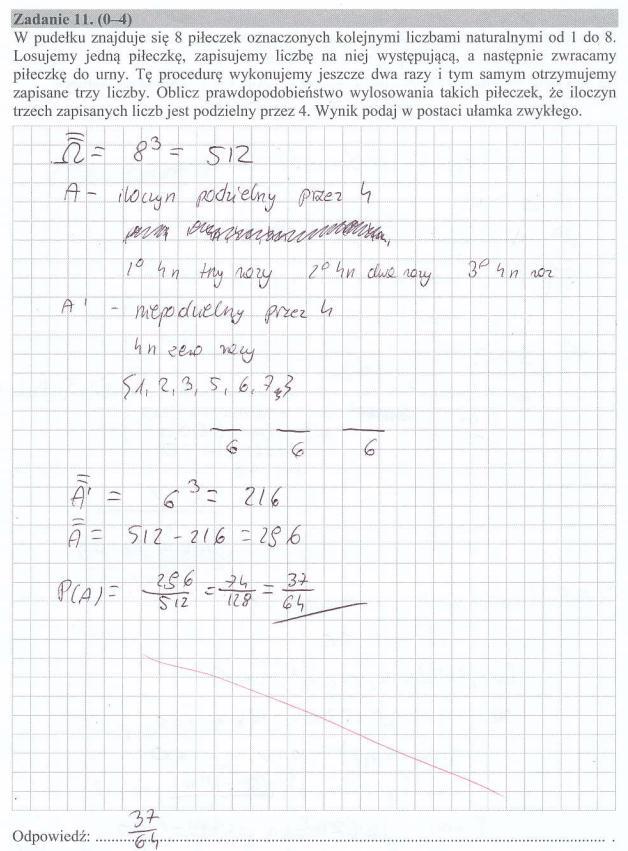 Zadanie 11. (0–4)
W pudełku znajduje się 8 piłeczek oznaczonych kolejnymi liczbami naturalnymi od 1 do 8.
Losujemy jedną piłeczkę, zapisujemy liczbę na niej występującą, a następnie zwracamy
piłeczkę do urny. Tę procedurę wykonujemy jeszcze dwa razy i tym samym otrzymujemy
zapisane trzy liczby. Oblicz prawdopodobieństwo wylosowania takich piłeczek, że iloczyn
trzech zapisanych liczb jest podzielny przez 4. Wynik podaj w postaci ułamka zwykłego.
Ω̿ = 8³ = 512
A – iloczyn podzielny przez 4
1° 4n trzy razy 2° 4n dwa razy 3° 4n raz
A' – niepodzielny przez 4
4n zero razy
{1, 2, 3, 5, 6, 7}
6 6 6
A̿' = 6³ = 216
A̿ = 512 – 216 = 296
P(A) = 296/512 = 74/128 = 37/64
Odpowiedź: 37/64